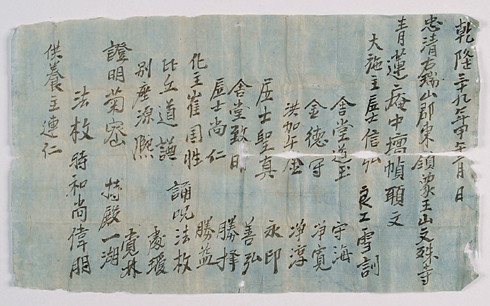 乾隆三十九年甲午二月日
忠清右瑞山郡東嶺象王山文殊寺
青蓮庵中壇幀願文
大施主居士信弘 良工雪訓
舍堂道玉 宇海
金德守 淨寬
洪加年金 淨淳
居士聖真 永印
舍堂致日 善弘
居士尚仁 勝擇
化主崔国性 勝益
比丘道謙 誦呪法枚
別座源熙 處瑗
證明菊密 持殿一湖 寬林
法枚 時和尚偉朋
供養主連仁